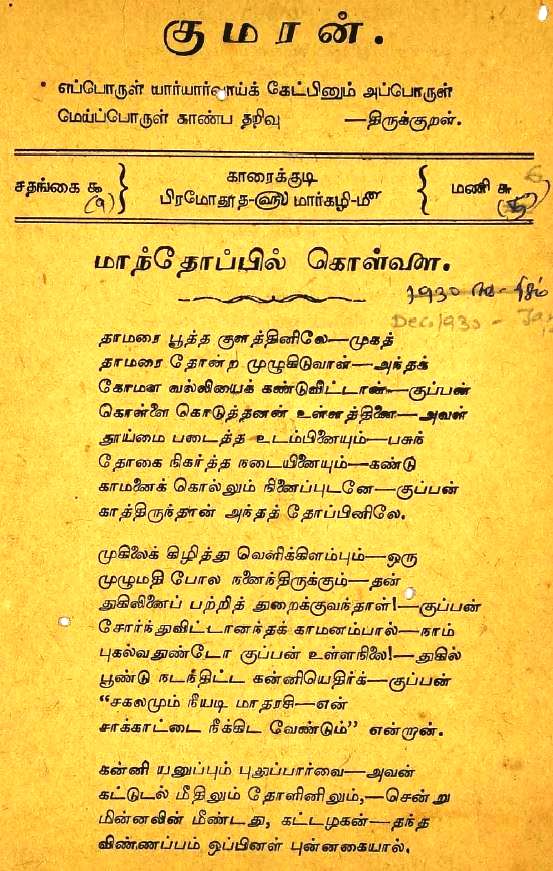 குமரன்.
எப்பொருள் யார்யார்வாய்க் கேட்பினும் அப்பொருள்
மெய்ப்பொருள் காண்ப தறிவு —திருக்குறள்.
சதங்கை ௯ } காரைக்குடி { மணி ௬
(9) பிரமோதூத-௵ மார்கழி-௴
மாந்தோப்பில் கொள்வளை.
1930
Dec 1930 - Jan
தாமரை பூத்த குளத்தினிலே—முகத்
தாமரை தோன்ற முழுகிடுவாள்—அந்தக்
கோமள வல்லியைக் கண்டுவிட்டான்—குப்பன்
கொள்ளை கொடுத்தனன் உள்ளத்தினை—அவள்
தூய்மை படைத்த உடம்பினையும்—பசுந்
தோகை நிகர்த்த நடையினையும்—கண்டு
காமனைக் கொல்லும் நினைப்புடனே—குப்பன்
காத்திருந்தான் அந்தத் தோப்பினிலே.
முகிலைக் கிழித்து வெளிக்கிளம்பும்—ஒரு
முழுமதி போல நனைந்திருக்கும்—தன்
துகிலினைப் பற்றித் துறைக்குவந்தாள்!—குப்பன்
சோர்ந்துவிட்டானந்தக் காமனம்பால்—நாம்
புகல்வதுண்டோ குப்பன் உள்ளநிலை!—துகில்
பூண்டு நடந்திட்ட கன்னியெதிர்க்—குப்பன்
“சகலமும் நீயடி மாதரசி—என்
சாக்காட்டை நீக்கிட வேண்டும்” என்றான்.
கன்னி யனுப்பும் புதுப்பார்வை—அவன்
கட்டுடல் மீதிலும் தோளினிலும்,—சென்று
மின்னலின் மீண்டது, கட்டழகன்—தந்த
விண்ணப்பம் ஒப்பினள் புன்னகையால்.